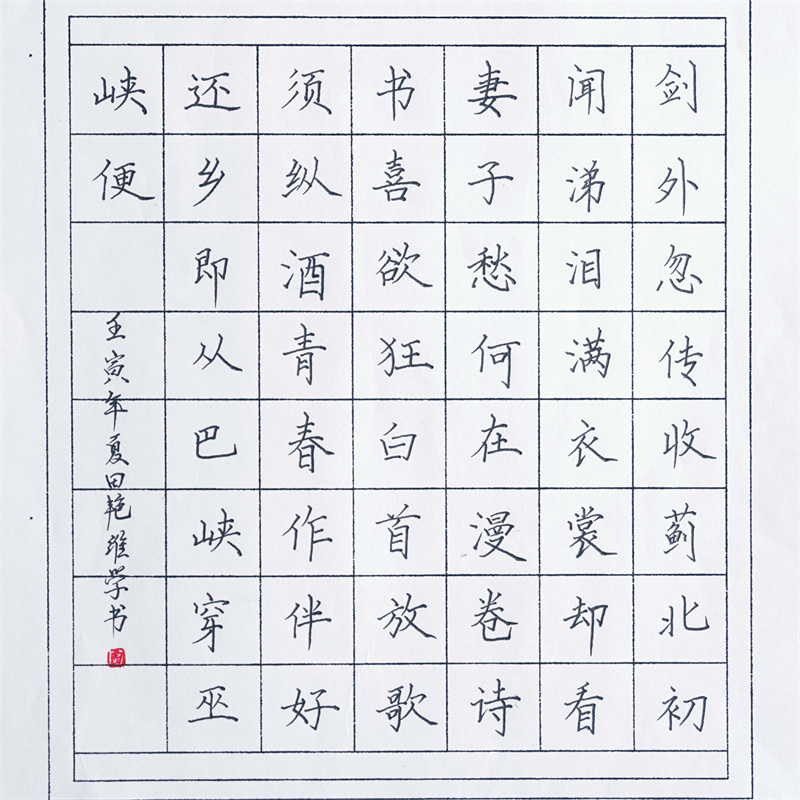 剑外忽传收蓟北初
闻涕泪满衣裳却看
妻子愁何在漫卷诗
书喜欲狂白首放歌
须纵酒青春作伴好
还乡即从巴峡穿巫
峡便
壬寅年夏田艳雄学书